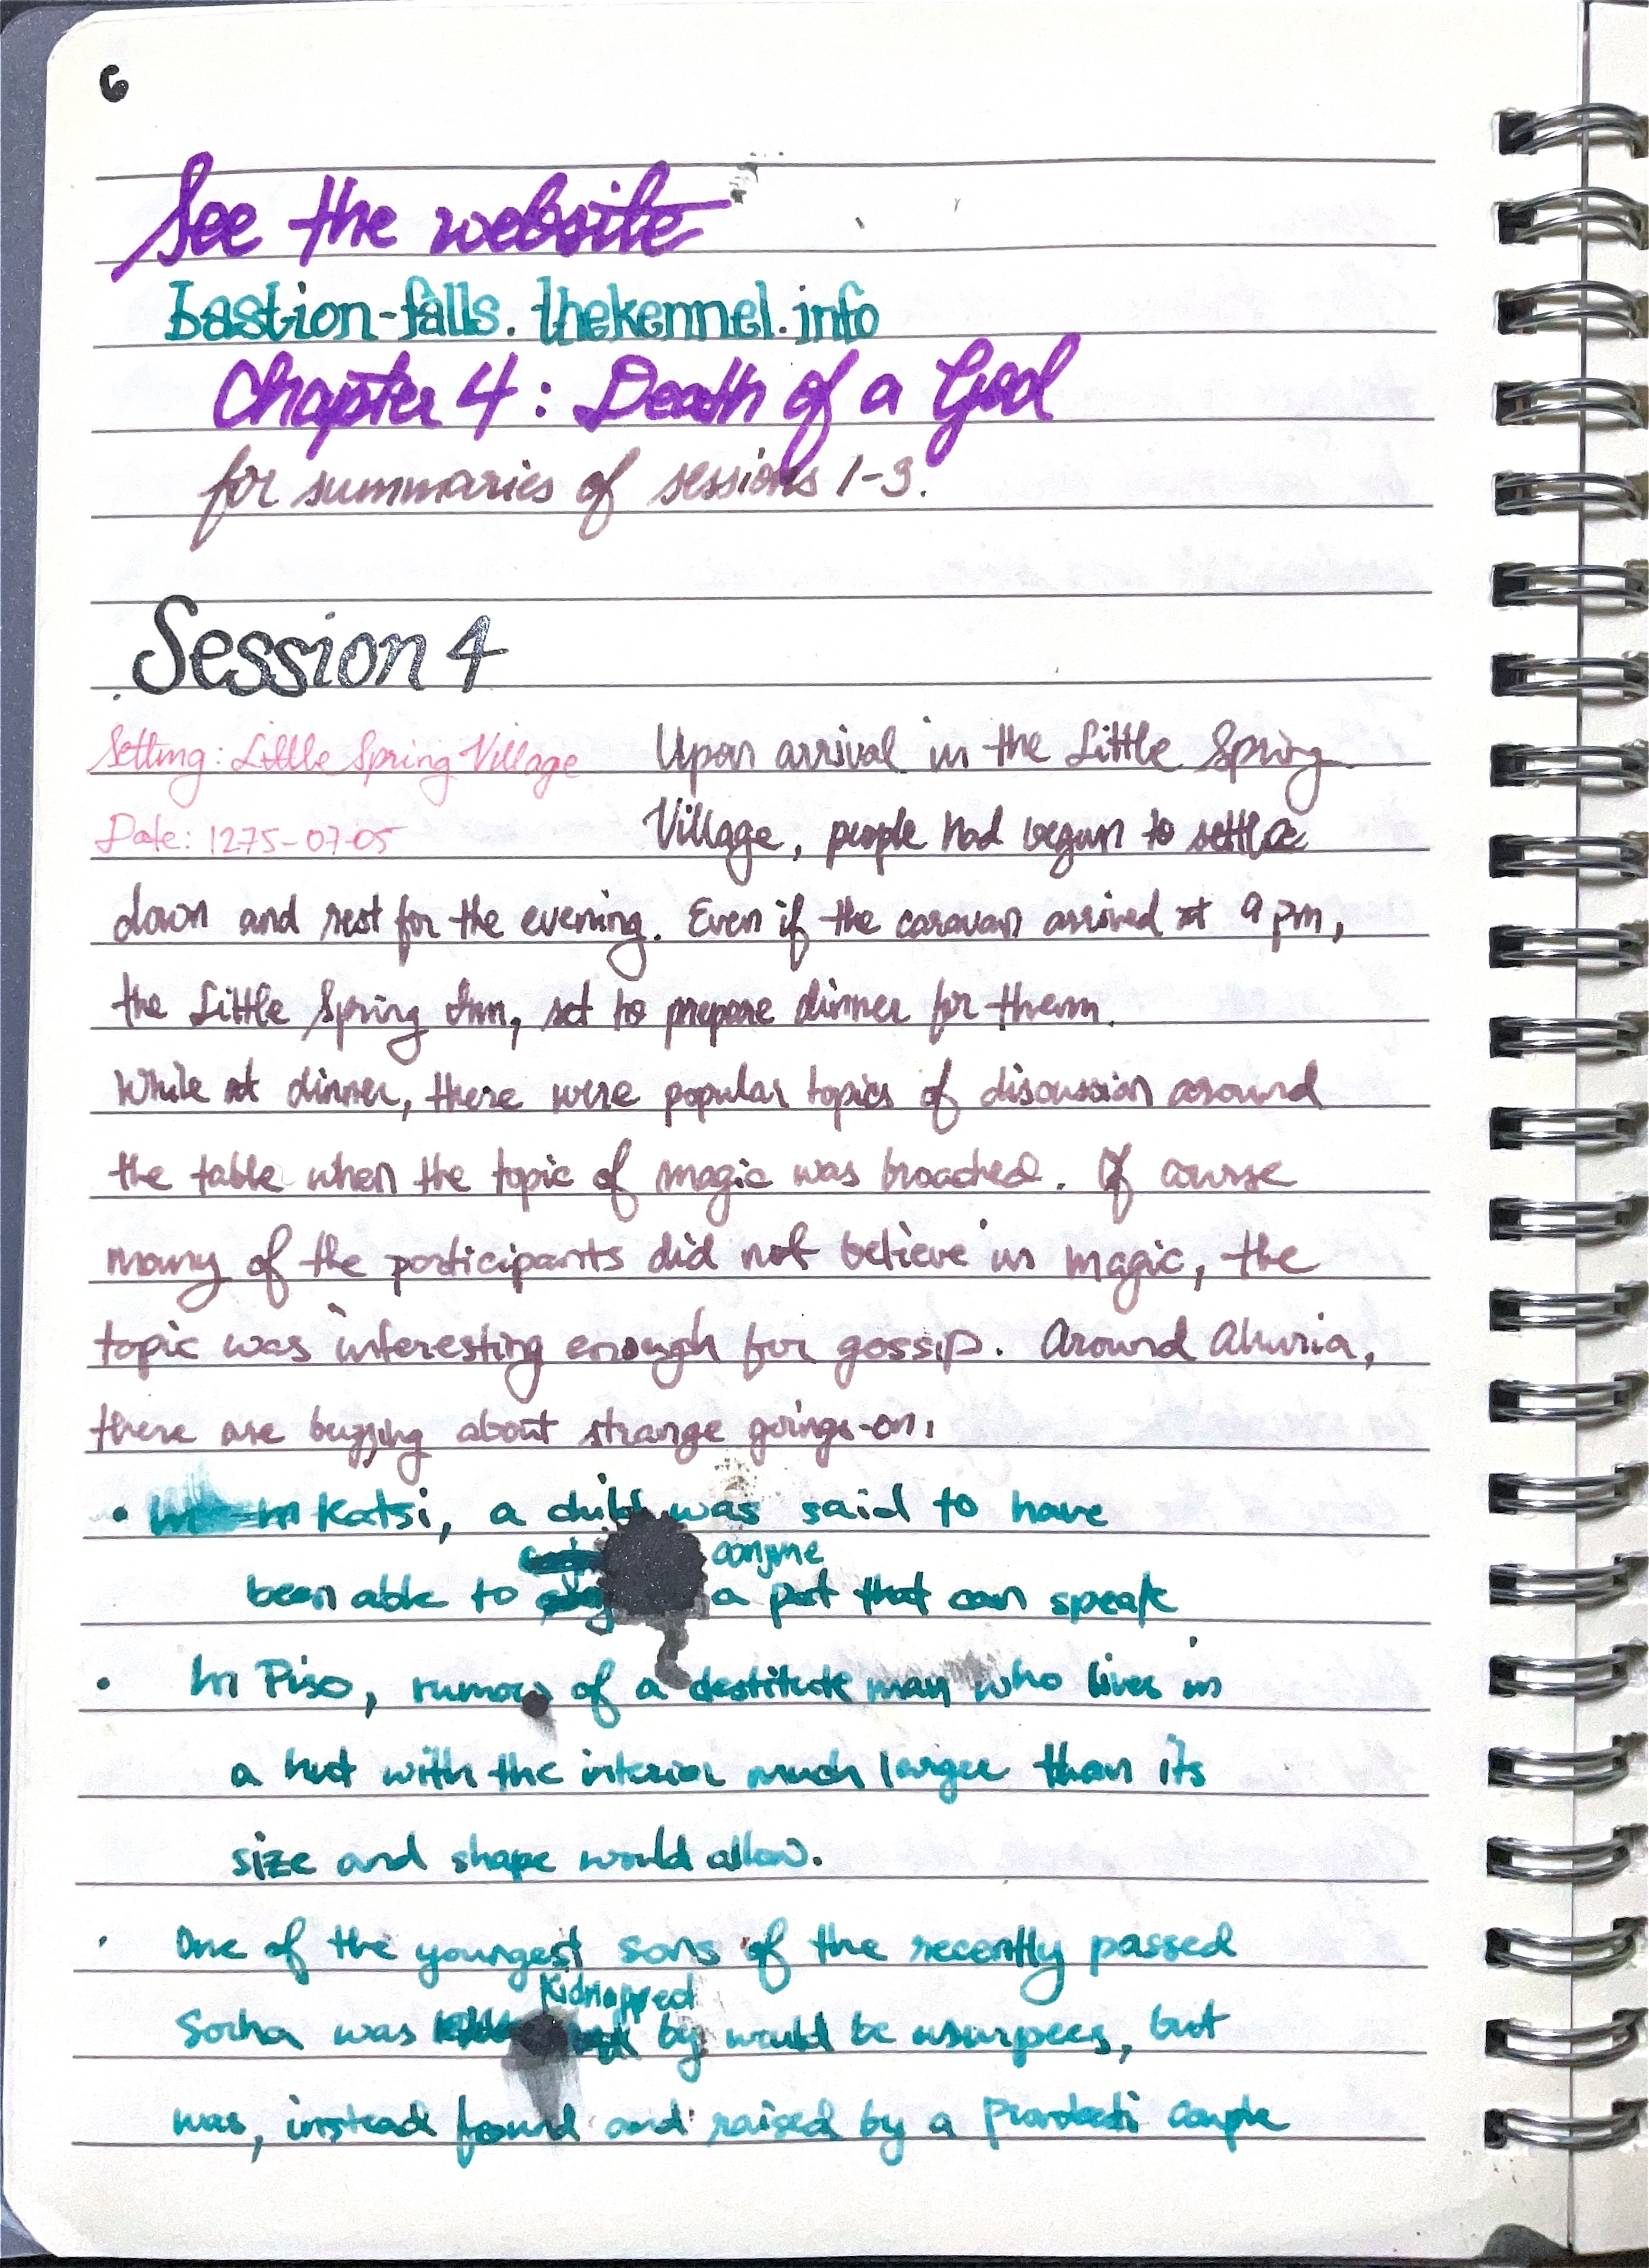 6
See the website
bastion-falls.thekennel.info
Chapter 4: Death of a God
for summaries of sessions 1-3.
Session 4
Setting: Little Spring Village
Date: 1275-07-05
Upon arrival in the Little Spring
Village, people had begun to settle
down and rest for the evening. Even if the caravan arrived at 9 pm,
the Little Spring Inn, set to prepare dinner for them.
While at dinner, there were popular topics of discussion around
the table when the topic of magic was broached. Of course
many of the participants did not believe in magic, the
topic was interesting enough for gossip. Around Aluria,
there are buzzing about strange goings-on.
• In Katsi, a child was said to have
been able to conjure a pot that can speak
• In Piso, rumors of a destitute man who lives in
a hut with the interior much larger than its
size and shape would allow.
• One of the youngest sons of the recently passed
Sorha was kidnapped by would be usurpees, but
was, instead found and raised by a couple